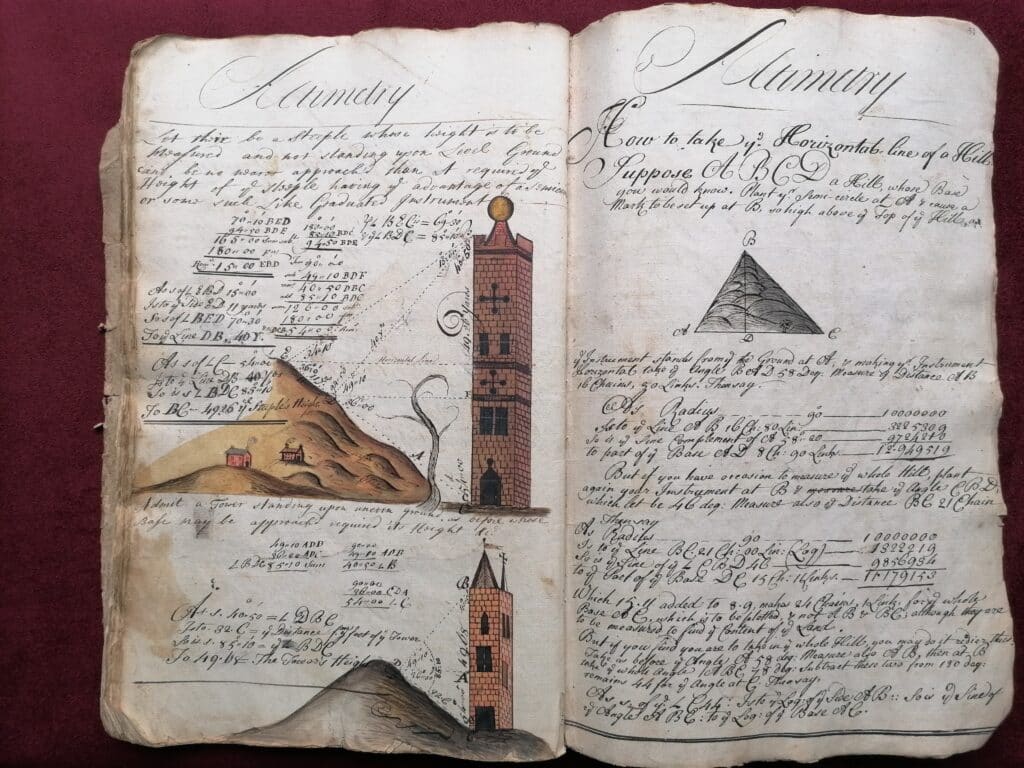 Altimetry
Let their be a Steeple whose height is to be
measured and not standing upon Level Ground
can be no nearer approached than A required yᵉ
Height of yᵉ Steeple having yᵉ advantage of a
or some such Like Graduated Instrument
70=10 BED
94=50 BDE
165=00 Sum
180=00
15=00 EBD
180=00
85=10 BDC
94=50 BDE
90=00
49=10 BDF
40=50 DBC
85=10 BDC
126=00
180=00
54=00
As s of L EBD 15=00
Is to yᵉ Side ED 11 yards
So s of L BED 70=10
To yᵉ Line DB, 40Y.
As s of L C 54=00
Is to yᵉ Line DB 40 yds
So is s L BDC 85=10
To BC = 4926 yᵉ Steeple's Height
Horizontal Line
36=00
A
Admit a Tower standing upon uneven ground, as before whose
Base may be approached required its Height
49=10 ADB
36=00 ADC
LBDC 85=10 Sum
90=00
49=10 ADB
40=50 LB
90=00
36=00 CDA
54=00 LC
As s. 40=50 = L DBC
Is to 32.C = yᵉ Distance yᵉ foot of yᵉ Tower
So is s. 85=10 = yᵉ L BDC
To 49. The Tower's Height
B
A
Altimetry
How to take yᵉ Horizontal line of a Hill
Suppose A B C D a Hill, whose Base
you would know. Plant yʳ Semi-circle at A & cause a
Mark to be set up at B, so high above yᵉ Top of yᵉ Hill, as
B
A D C
yᵉ Instrument stands from yᵉ Ground at A, & making yʳ Instrument
Horizontal take yᵉ Angle BAD 58 Deg: Measure yᵉ Distance AB
16 Chains, 80 Links. Thus say.
As Radius 90 10000000
Is to yᵉ Line AB 16 Ch: 80 Lin: 3225309
So is yᵉ Sine Complement of A 58=00 9724210
to part of yᵉ Base AD 8 Ch: 90 Links. 12-949519
But if you have occasion to measure yᵉ whole Hill, plant
again your Instrument at B & take yᵉ Angle CBD,
which let be 46 deg: Measure also yᵉ Distance BC 21 Chain
Thus say
As Radius 90 10000000
Is to yᵉ Line BC: 21 Ch: 00 Lin: (Log) 1322219
So is yᵉ Sine of yᵉ L CBD 46 9856934
to yᵉ Part of yᵉ Base DC 15 Ch: 11 Links. 11179153
Which 15.11 added to 8.9, makes 24 Chains, 1 Link for yᵉ whole
Base AC, which is to be plotted, & not AB & BC, although they are
to be measured to find yᵉ Content of yᵉ Land.
But if you find you are to take in yᵉ whole Hill, you may do it
Take as before yᵉ Angle A 58 deg: Measure also AB, then at B
take yᵉ whole Angle ABC 78 deg: Subtract these two from 180 deg:
remains 44 for yᵉ Angle at C. Thus say.
As s of yᵉ L C 44: Is to yᵉ Log: of yᵉ Side AB :: So is yᵉ Sine of
yᵉ Angle ABC: to yᵉ Log: of yᵉ Base AC.